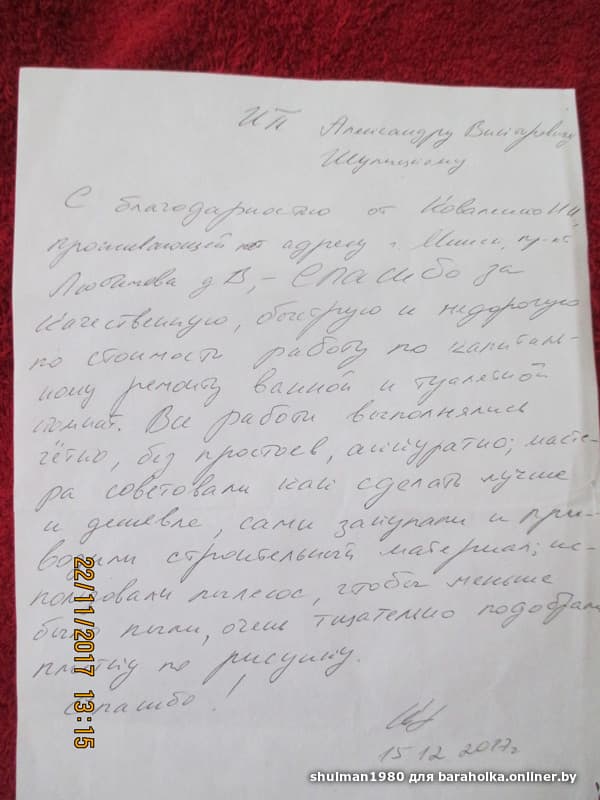 ИП Александру Викторовичу
Шулицкому
С благодарностью от Коваленко Н.И,
проживающей по адресу г. Минск, пр-кт
Любимова д , – Спасибо за
качественную, быструю и недорогую
по стоимости работу по капиталь-
ному ремонту ванной и туалетной
комнат. Все работы выполнялись
чётко, без простоев, аккуратно; масте-
ра советовали как сделать лучше
и дешевле, сами закупали и при-
возили строительный материал; ис-
пользовали пылесос, чтобы меньше
было пыли, очень тщательно подобрали
плитку по рисунку.
Спасибо!
15 12 2017г
22/11/2017 13:15
shulman1980 для baraholka.onliner.by